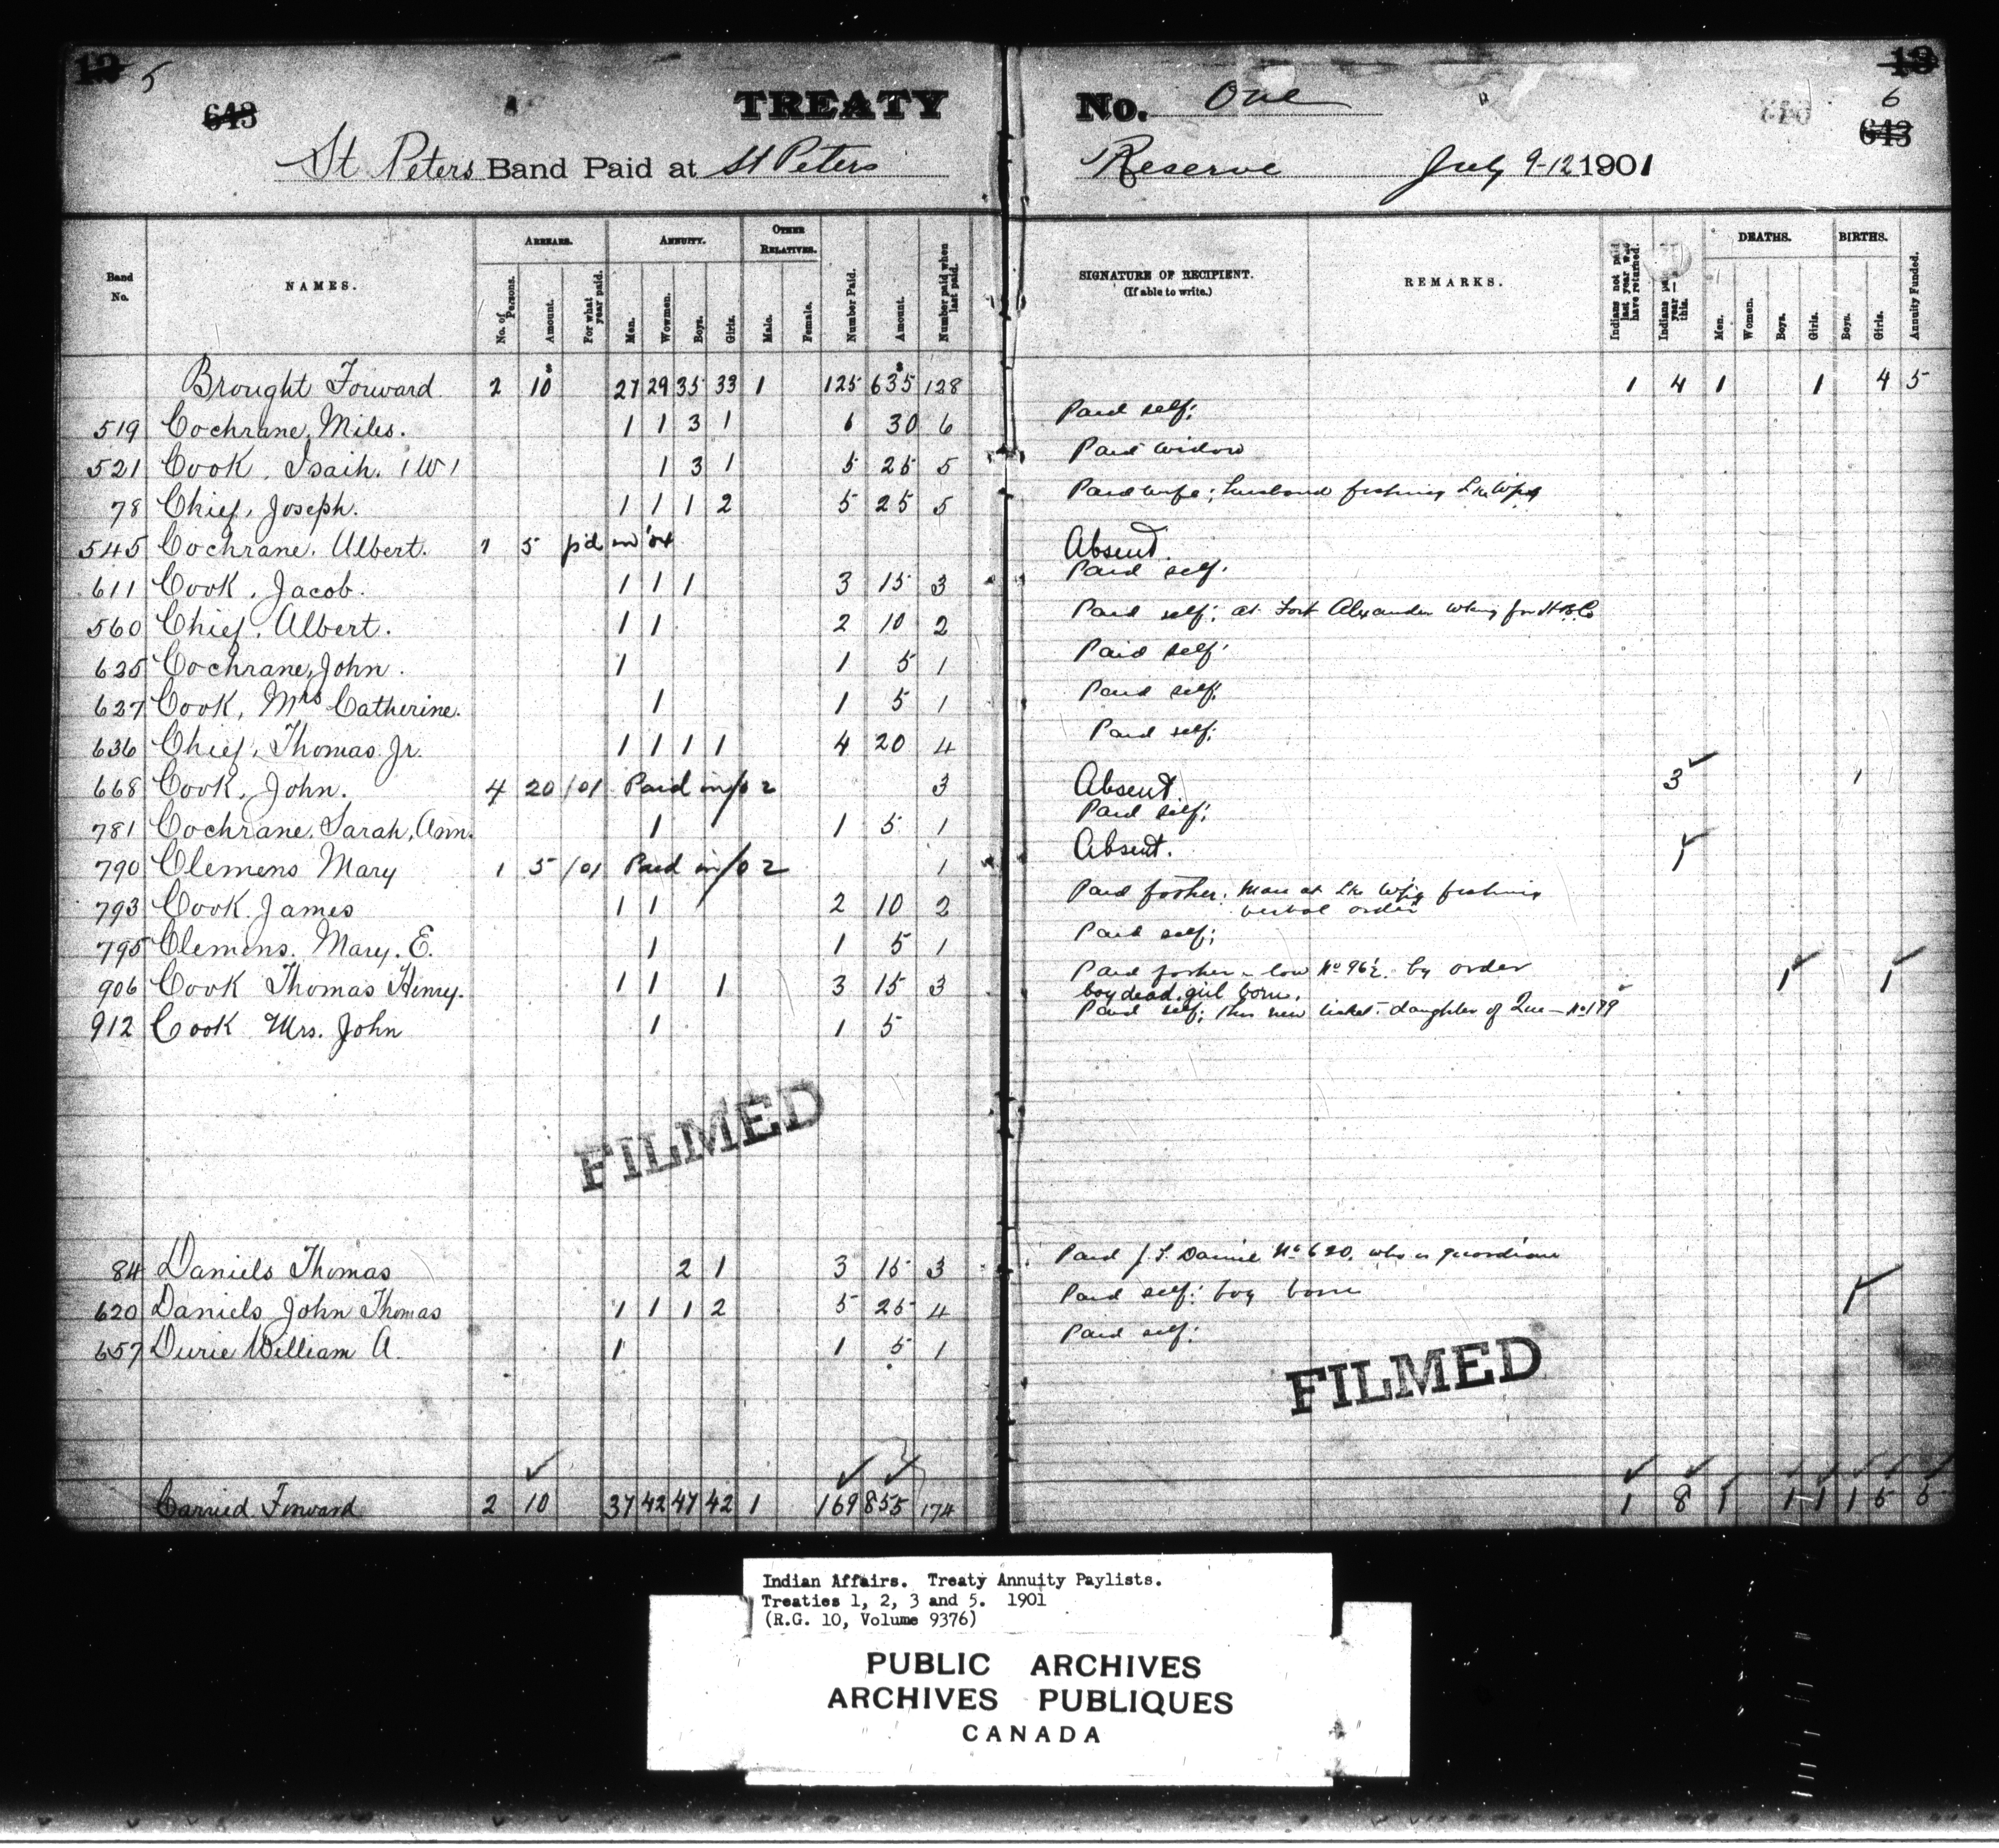 12 5
643
TREATY No. One
13
6
643
St Peters Band Paid at St Peters Reserve July 9-12 1901
Band No. NAMES. ARREARS. No. of Persons. Amount. For what year paid. ANNUITY. Men. Wowmen. Boys. Girls. OTHER RELATIVES. Male. Female. Number Paid. Amount. Number paid when last paid. SIGNATURE OF RECIPIENT. (If able to write.) REMARKS. Indians not paid last year who have returned. Indians year this. DEATHS. Men. Women. Boys. Girls. BIRTHS. Boys. Girls. Annuity Funded.
Brought Forward. 2 10 27 29 35 33 1 125 635 128 1 4 1 1 4 5
519 Cochrane, Miles. 1 1 3 1 6 30 6 Paid self;
521 Cook, Isaih. (W) 1 3 1 5 25 5 Paid widow
78 Chief, Joseph. 1 1 1 2 5 25 5 Paid wife; husband fishing Lke Wpg
545 Cochrane, Albert. 1 5 pd in '04 Absent.
611 Cook, Jacob. 1 1 1 3 15 3 Paid self.
560 Chief, Albert. 1 1 2 10 2 Paid self; at Fort Alexander wking for H.B.Co
625 Cochrane, John. 1 1 5 1 Paid self.
627 Cook, Mrs Catherine. 1 1 5 1 Paid self.
636 Chief, Thomas Jr. 1 1 1 1 4 20 4 Paid self;
668 Cook, John. 4 20 /01 Paid in/02 3 Absent 3 1
781 Cochrane, Sarah, Ann. 1 1 5 1 Paid self;
790 Clemens Mary 1 5 /01 Paid in/02 1 Absent. 1
793 Cook James 1 1 2 10 2 Paid father. Man at Lke Wpg fishing
verbal order
795 Clemens. Mary. E. 1 1 5 1 Paid self;
906 Cook Thomas Henry. 1 1 1 3 15 3 Paid by order 1 1
boy dead, girl born.
912 Cook Mrs. John 1 1 5 Paid self; this new ticket. daughter of No 179
FILMED
84 Daniels Thomas 2 1 3 15 3 Paid J. T. Daniel No 620, who is guardian
620 Daniels John Thomas 1 1 1 2 5 25 4 Paid self; boy born 1
657 Durie William A. 1 1 5 1 Paid self.
FILMED
Carried Forward 2 10 37 42 47 42 1 169 855 174 1 8 1 1 1 1 5 5
Indian Affairs. Treaty Annuity Paylists.
Treaties 1, 2, 3 and 5. 1901
(R.G. 10, Volume 9376)
PUBLIC ARCHIVES
ARCHIVES PUBLIQUES
CANADA